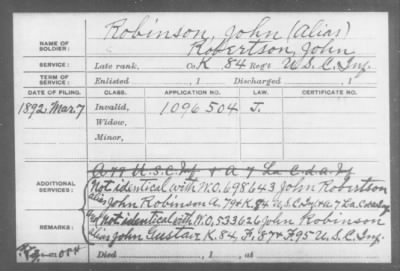 NAME OF SOLDIER: Robinson, John (Alias)
Robertson, John
SERVICE: Late rank, Co. K, 84 Reg't U.S.C. Inf.
TERM OF SERVICE: Enlisted , 1 Discharged , 1
DATE OF FILING. CLASS. APPLICATION NO. LAW. CERTIFICATE NO.
1892 Mar. 7 Invalid, 1096504 J.
Widow,
Minor,
ADDITIONAL SERVICES: A 79 U.S.C. If + A 7 La C.d.a. If
Not identical with W.O. 698643 John Robertson
alias John Robinson A. 79 + K. 84 U.S.C. If + A 7 La
REMARKS: But not identical with W.O. 533626 John Robinson
alias John Gustave K. 84, F. 87 + F. 95 U.S.C. Inf.
Died , 1 , at